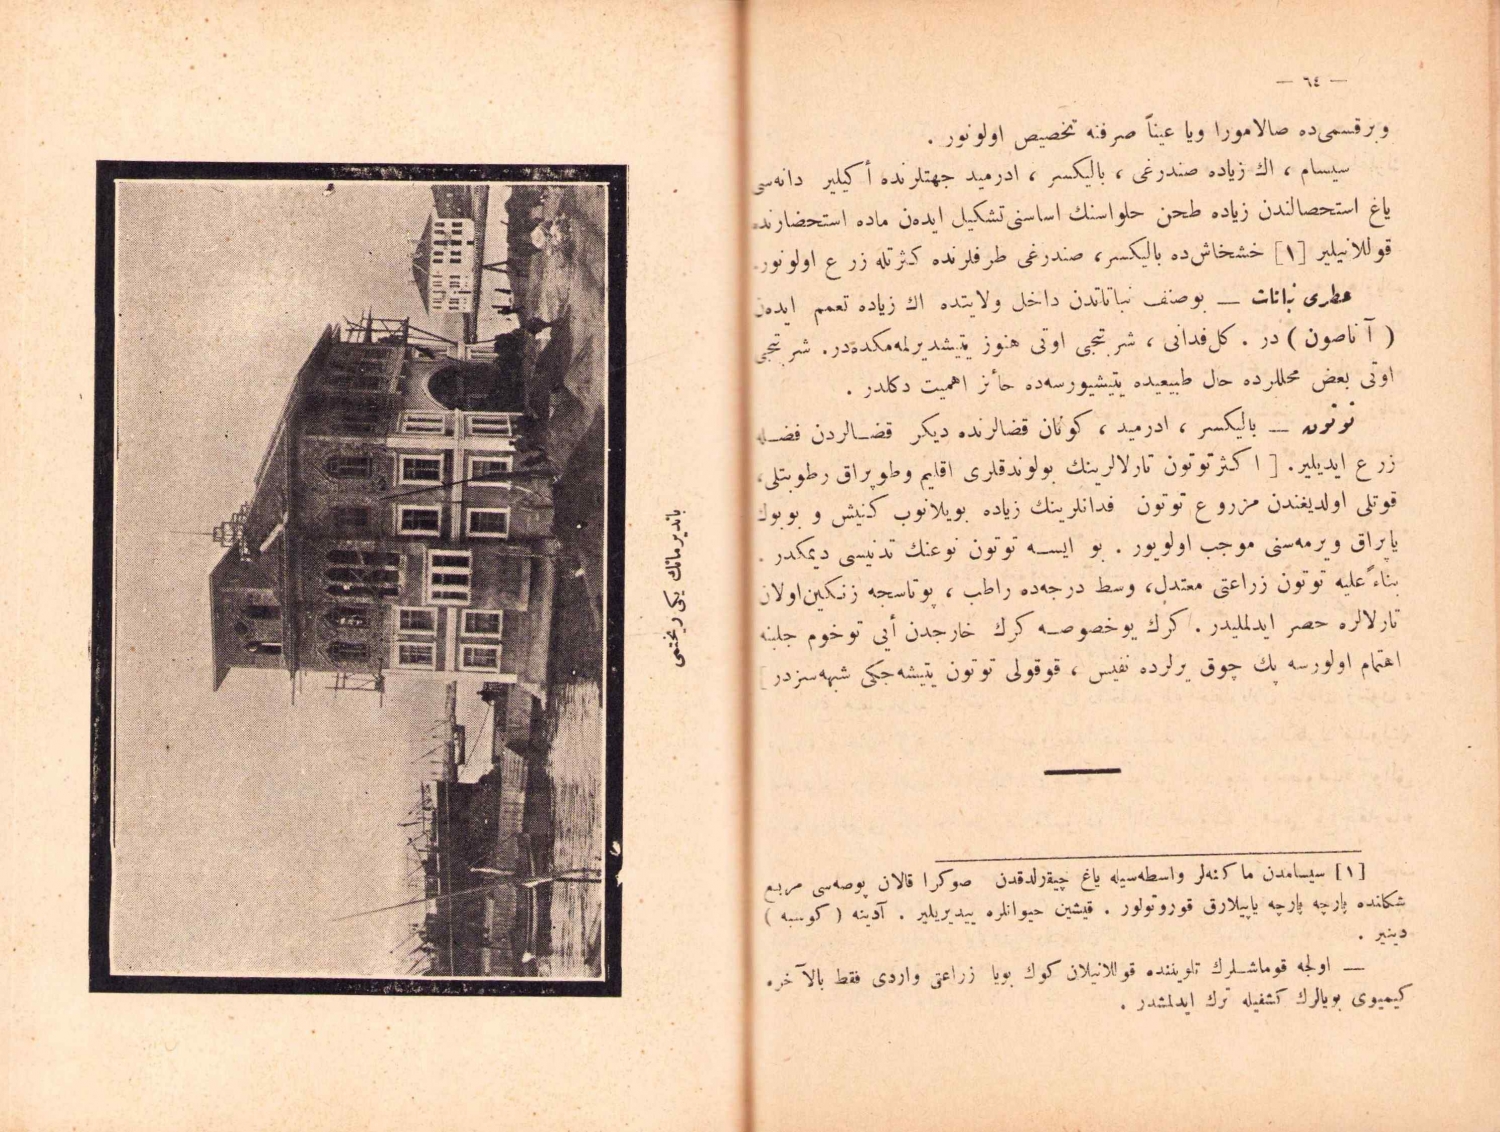 — ٦٤ —
وبر قسمی‌ده صالامورا ویا عیناً صرفنه تخصیص اولونور .
سیسام ، اك زیاده صندرغی ، بالیکسر ، ادرمید جهتلرنده أکیلیر دانه‌سی
یاغ استحصالندن زیاده طحن حلواسنك اساسنی تشکیل ایده‌ن ماده استحضارنده
قوللانیلیر [١] خشخاش‌ده بالیکسر، صندرغی طرفلرنده کثرتله زرع اولونور.
عطری نباتات — بوصنف نباتاتدن داخل ولایتده اك زیاده تعمم ایده‌ن
( آناصون ) در . کل‌فدانی ، شربتجی اوتی هنوز یتیشدیرلمه‌مکده‌در. شربتجی
اوتی بعض محللرده حال طبیعیده یتیشیورسه‌ده حائز اهمیت دکلدر .
توتون — بالیکسر ، ادرمید ، کونان قضالرنده دیکر قضـالردن فضـله
زرع ایدیلیر. [ اکثر توتون تارلالرینك بولوندقلری اقلیم وطوپراق رطوبتلی،
قوتلی اولدیغندن مزروع توتون فدانلرینك زیاده بویلانوب کنیش و بویوك
یاپراق ویرمه‌سنی موجب اولویور . بو ایسـه توتون نوعنك تدنیسی دیمکدر .
بناءً علیه توتون زراعتی معتدل، وسط درجه‌ده راطب ، پوتاسجه زنکین‌اولان
تارلالره حصر ایدلملیدر . کرك بوخصوصـه کرك خارجدن أیی توخوم جلبنه
اهتمام اولورسه پك چوق یرلرده نفیس ، قوقولی توتون یتیشه‌جکی شبهه‌سزدر ]
[١] سیسامدن ماکنه‌لر واسطه‌سیله یاغ چیقرلدقدن صوکرا قالان پوصه‌سی مربع
شکلنده پارچه پارچه یاپیلارق قوروتولور . قیشین حیوانلره ییدیریلیر . آدینه ( کوسبه )
دینیر .
— اولجه قوماشـلرك تلویننده قوللانیلان کوك بویا زراعتی واردی فقط بالآخره
کیمیوی بویالرك کشفیله ترك ایدلمشدر .
باندیرمانك یکی ریختمی